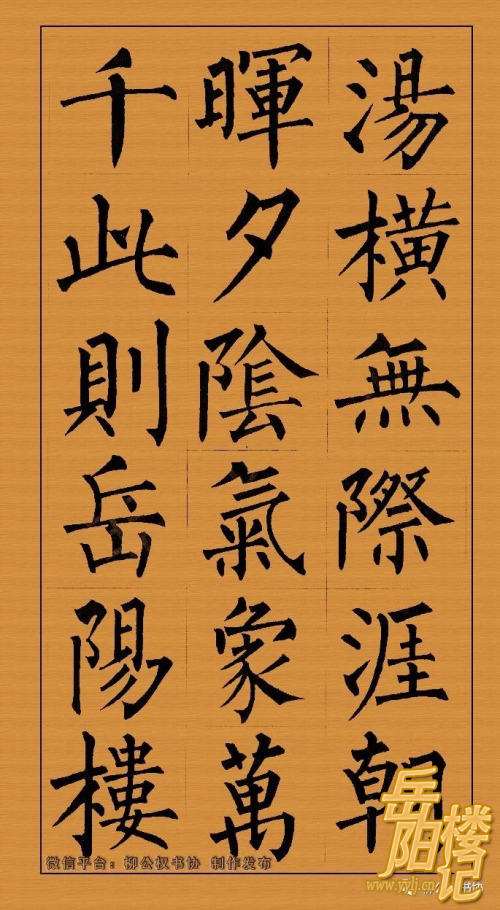 湯橫無際涯朝
暉夕陰氣象萬
千此則岳陽樓
微信平台：柳公权书协 制作发布
岳阳楼记
www.yylj.cn
书协